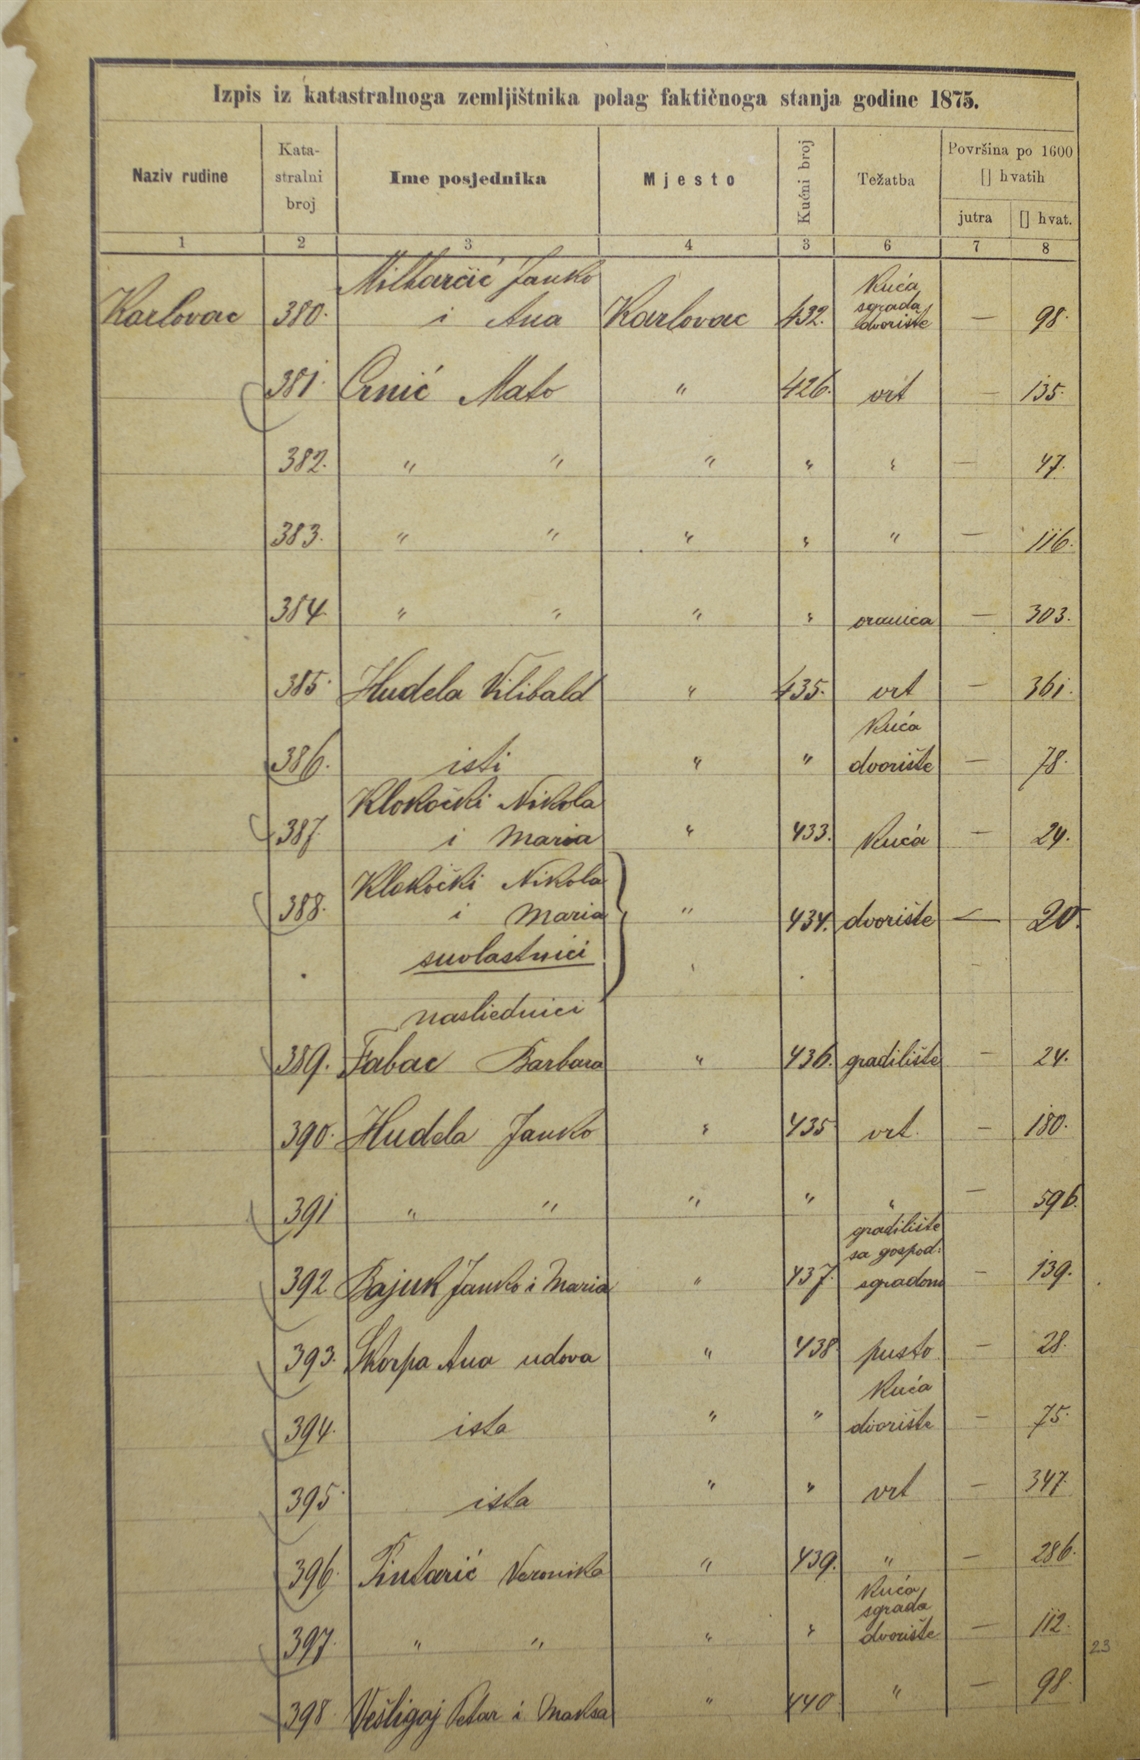 Izpis iz katastralnoga zemljištnika polag faktičnoga stanja godine 1875.
Naziv rudine Kata-stralni broj Ime posjednika Mjesto Kućni broj Težatba Površina po 1600 [] hvatih
jutra [] hvat.
1 2 3 4 3 6 7 8
Miltarčić Janko kuća
sgrada
Karlovac 380. i Ana Karlovac 432. dvorište — 98.
381. Crnić Mato " 426. vrt — 135.
382. " " " " " — 47.
383. " " " " " — 116.
384. " " " " oranica — 303.
385. Hudela Vilibald " 435. vrt — 361.
kuća
386. isti " " dvorište — 78.
Klokočki Nikola
387. i Maria " 433. kuća — 24.
Klokočki Nikola
388. i Maria " 434. dvorište — 20.
suvlastnici
nasliednici
389. Fabac Barbara " 436. gradilište — 24.
390. Hudela Janko " 435 vrt. — 180.
391 " " " " " — 596.
gradilište
sa gospod.
392 Bajuk Janko i Maria " 437. sgradom — 139.
393. Skorpa Ana udova " 438 pusto — 28.
kuća
394. ista " " dvorište — 75.
395. ista " " vrt — 347.
396. Pintarić Veronika " 439. " — 286.
kuća
sgrada
397. " " " " dvorište — 112.
23
398 Vešligaj Petar i Maksa " 440. " — 98.